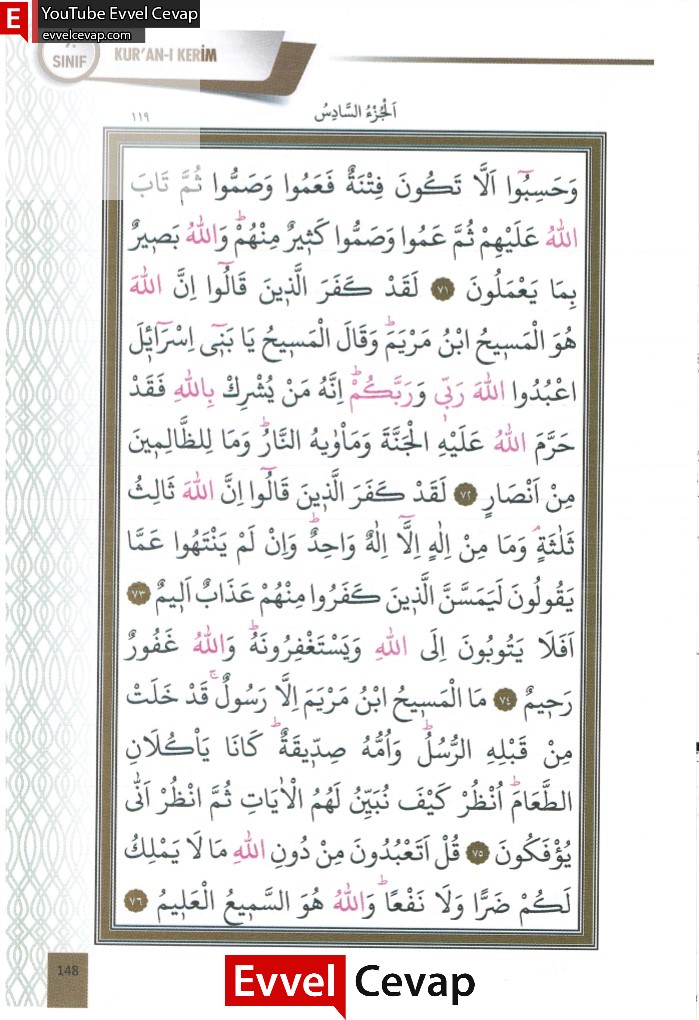 YouTube Evvel Cevap
evvelcevap.com
SINIF
KUR'AN-I KERİM
اَلْجُزْءُ السَّادِسُ
١١٩
وَحَسِبُٓوا اَلَّا تَكُونَ فِتْنَةٌ فَعَمُوا وَصَمُّوا ثُمَّ تَابَ
اللّٰهُ عَلَيْهِمْ ثُمَّ عَمُوا وَصَمُّوا كَثٖيرٌ مِنْهُمْؕ وَاللّٰهُ بَصٖيرٌ
بِمَا يَعْمَلُونَ ﴿٧١﴾ لَقَدْ كَفَرَ الَّذٖينَ قَالُٓوا اِنَّ اللّٰهَ
هُوَ الْمَسٖيحُ ابْنُ مَرْيَمَؕ وَقَالَ الْمَسٖيحُ يَا بَنٖٓي اِسْرَٓائٖلَ
اعْبُدُوا اللّٰهَ رَبّٖي وَرَبَّكُمْؕ اِنَّهُ مَنْ يُشْرِكْ بِاللّٰهِ فَقَدْ
حَرَّمَ اللّٰهُ عَلَيْهِ الْجَنَّةَ وَمَاْوٰيهُ النَّارُؕ وَمَا لِلظَّالِمٖينَ
مِنْ اَنْصَارٍ ﴿٧٢﴾ لَقَدْ كَفَرَ الَّذٖينَ قَالُٓوا اِنَّ اللّٰهَ ثَالِثُ
ثَلٰثَةٍۘ وَمَا مِنْ اِلٰهٍ اِلَّٓا اِلٰهٌ وَاحِدٌؕ وَاِنْ لَمْ يَنْتَهُوا عَمَّا
يَقُولُونَ لَيَمَسَّنَّ الَّذٖينَ كَفَرُوا مِنْهُمْ عَذَابٌ اَلٖيمٌ ﴿٧٣﴾
اَفَلَا يَتُوبُونَ اِلَى اللّٰهِ وَيَسْتَغْفِرُونَهُؕ وَاللّٰهُ غَفُورٌ
رَحٖيمٌ ﴿٧٤﴾ مَا الْمَسٖيحُ ابْنُ مَرْيَمَ اِلَّا رَسُولٌۚ قَدْ خَلَتْ
مِنْ قَبْلِهِ الرُّسُلُؕ وَاُمُّهُ صِدّٖيقَةٌؕ كَانَا يَاْكُلَانِ
الطَّعَامَؕ اُنْظُرْ كَيْفَ نُبَيِّنُ لَهُمُ الْاٰيَاتِ ثُمَّ انْظُرْ اَنّٰى
يُؤْفَكُونَ ﴿٧٥﴾ قُلْ اَتَعْبُدُونَ مِنْ دُونِ اللّٰهِ مَا لَا يَمْلِكُ
لَكُمْ ضَرًّا وَلَا نَفْعًاؕ وَاللّٰهُ هُوَ السَّمٖيعُ الْعَلٖيمُ ﴿٧٦﴾
148
Evvel Cevap